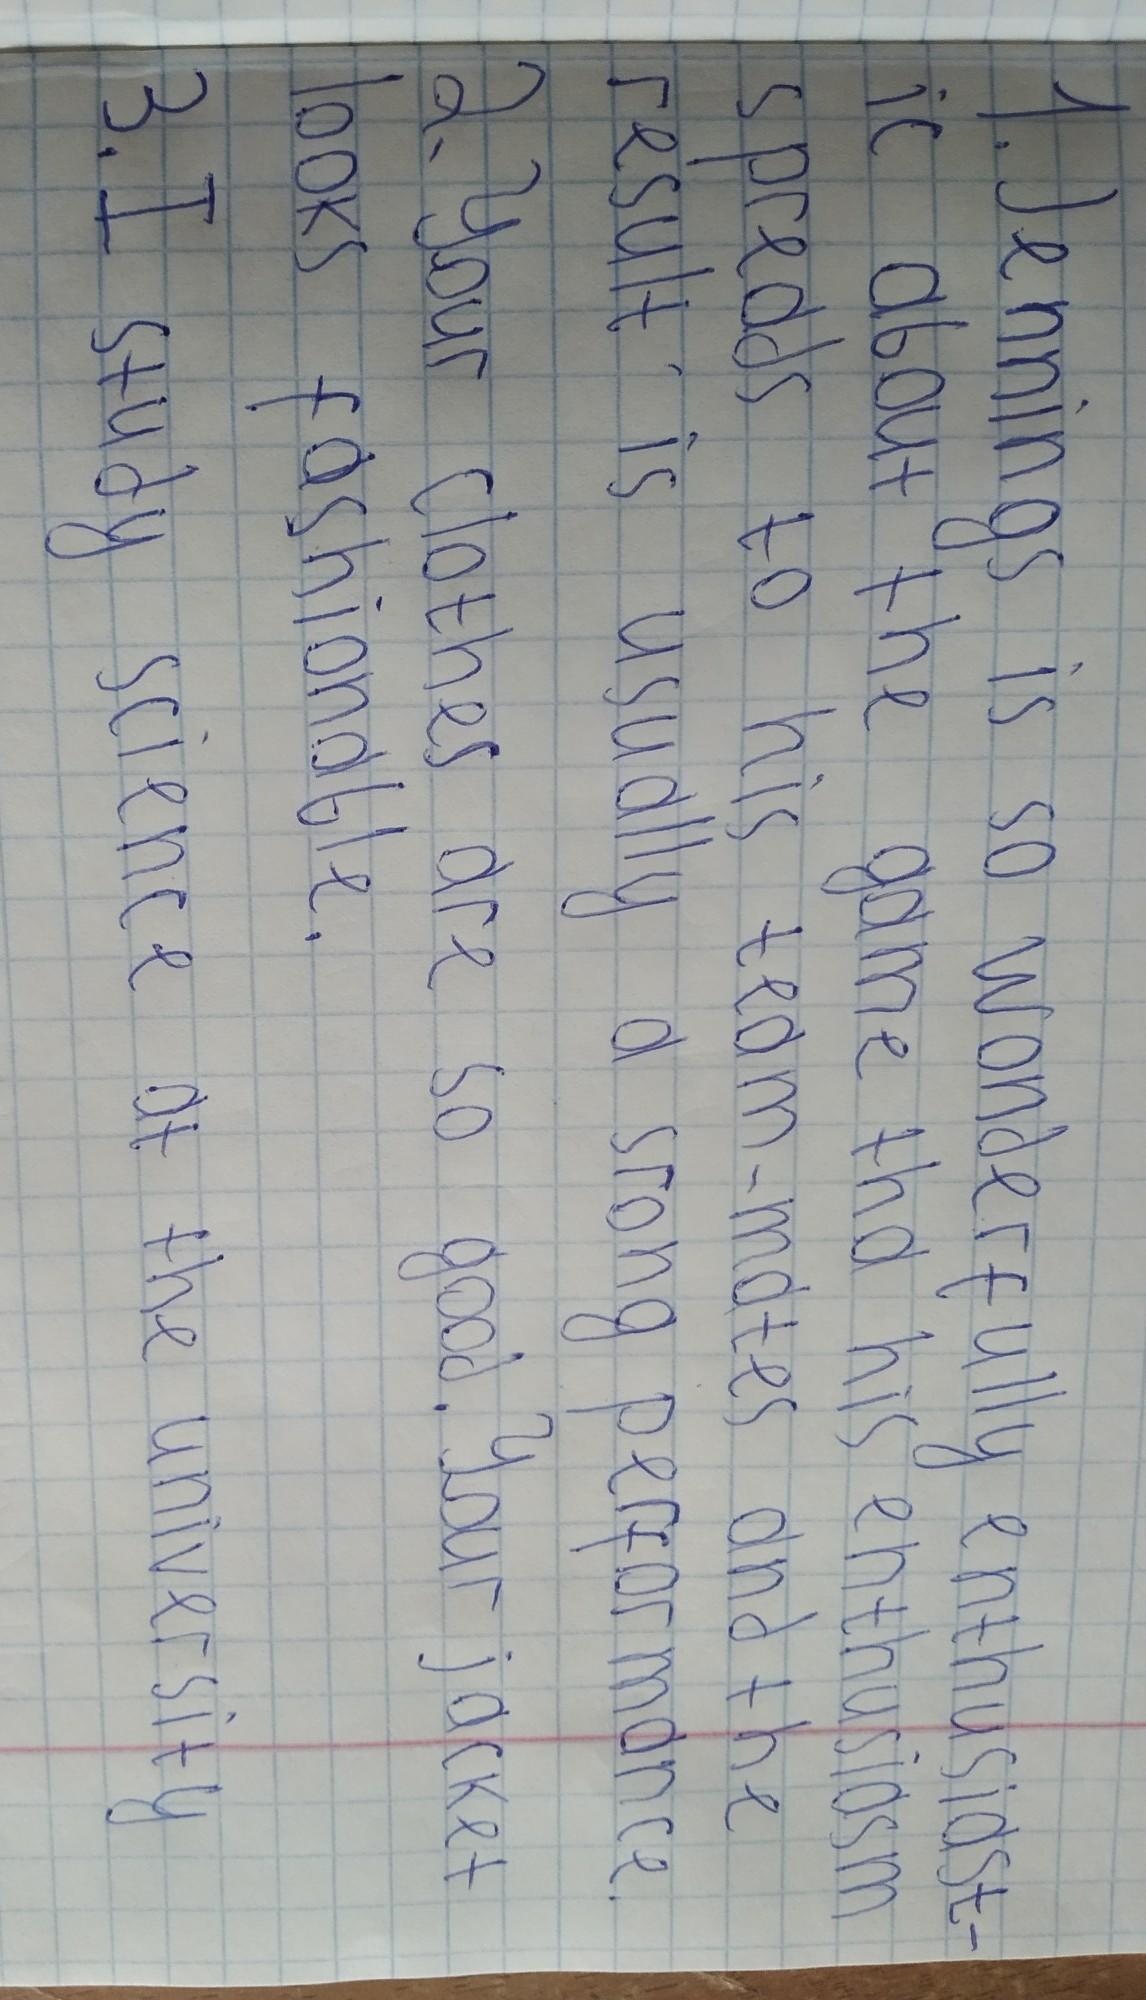 1. Jennings is so wonderfully enthusiast-
ic about the game tha his enthusiasm
spreads to his team-mates and the
result is usually a srong performance.
2. Your clothes are so good. Your jacket
looks fashionable.
3. I study science at the university